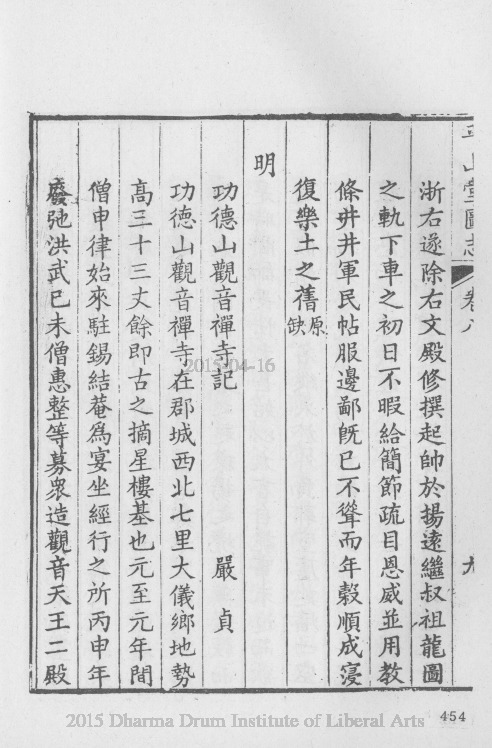 平山堂圖志 卷八 九
浙右遂除右文殿修撰起帥於揚遠繼叔祖龍圖
之軌下車之初日不暇給簡節疏目恩威並用教
條井井軍民帖服邊鄙旣已不聳而年穀順成寖
復樂土之舊原缺
明
功德山觀音禪寺記 嚴貞
功德山觀音禪寺在郡城西北七里大儀鄉地勢
高三十三丈餘即古之摘星樓基也元至元年間
僧申律始來駐錫結菴爲宴坐經行之所丙申年
廢弛洪武已未僧惠整等募衆造觀音天王二殿
2015-04-16
454
2015 Dharma Drum Institute of Liberal Arts